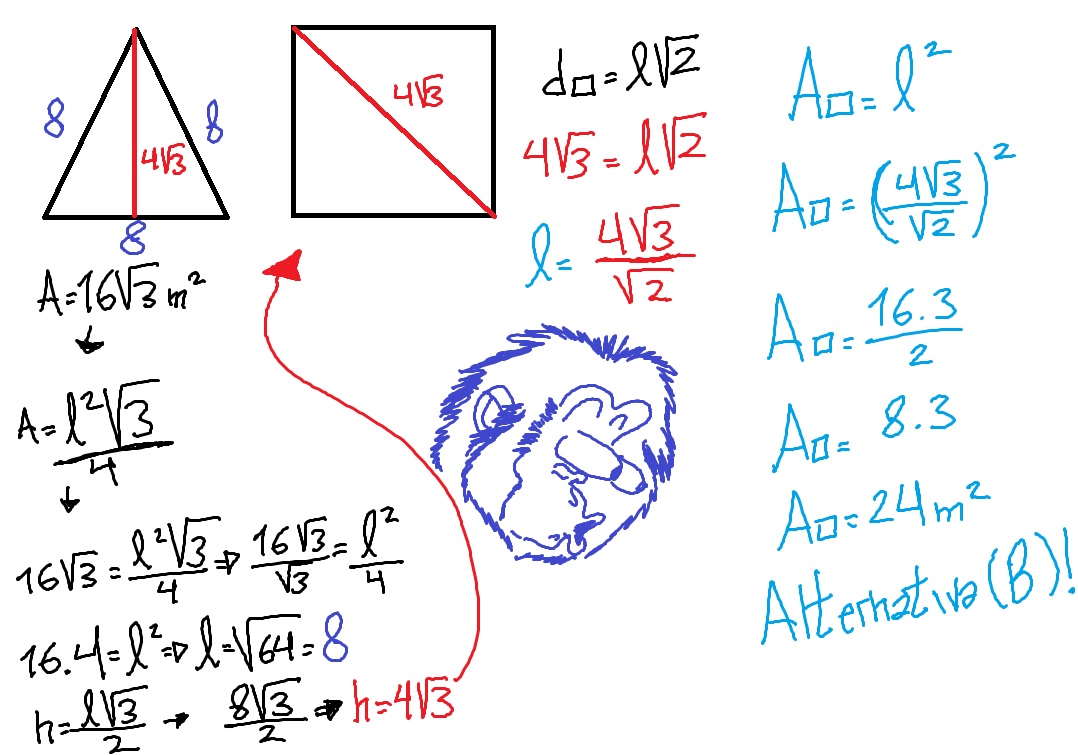 8
8
4√3
8
A=16√3 m²
A=l²√3/4
16√3=l²√3/4⇒16√3/√3=l²/4
16.4=l²⇒l=√64=8
h=l√3/2→8√3/2⇒h=4√3
4√3
d□=l√2
4√3=l√2
l=4√3/√2
A□=l²
A□=(4√3/√2)²
A□=16.3/2
A□=8.3
A□=24m²
Alternativa(B)!